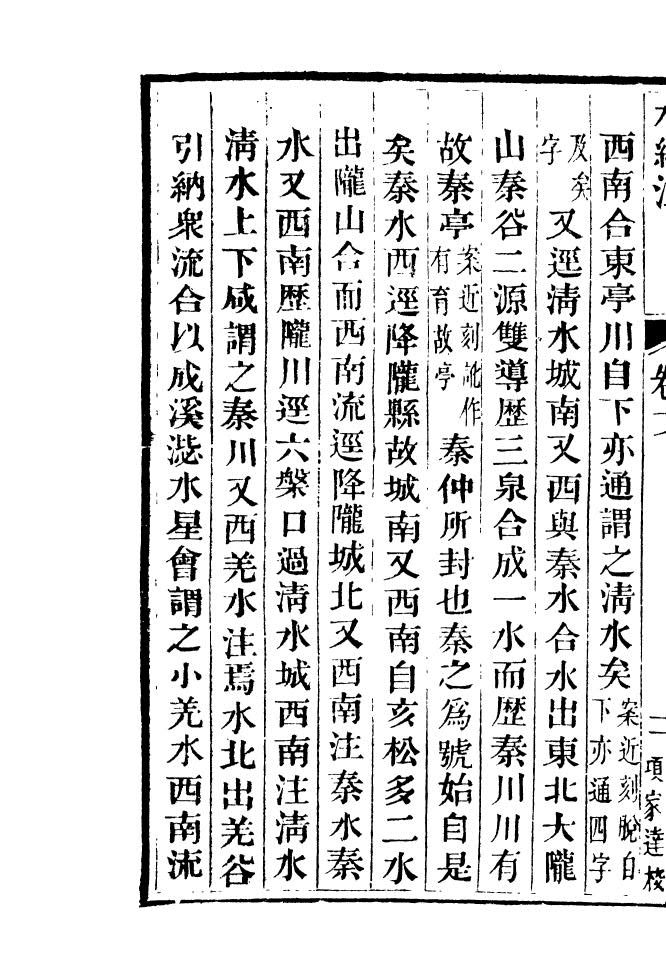 水經注 卷十 二 項家達校
西南合東亭川自下亦通謂之淸水矣案近刻脫自下亦通四字
及矣字又逕淸水城南又西與秦水合水出東北大隴
山秦谷二源雙導歷三泉合成一水而歷秦川川有
故秦亭案近刻訛作有育故亭秦仲所封也秦之爲號始自是
矣秦水西逕降隴縣故城南又西南自亥松多二水
出隴山合而西南流逕降隴城北又西南注秦水秦
水又西南歷隴川逕六槃口過淸水城西南注淸水
淸水上下咸謂之秦川又西羌水注焉水北出羌谷
引納衆流合以成溪滋水星會謂之小羌水西南流